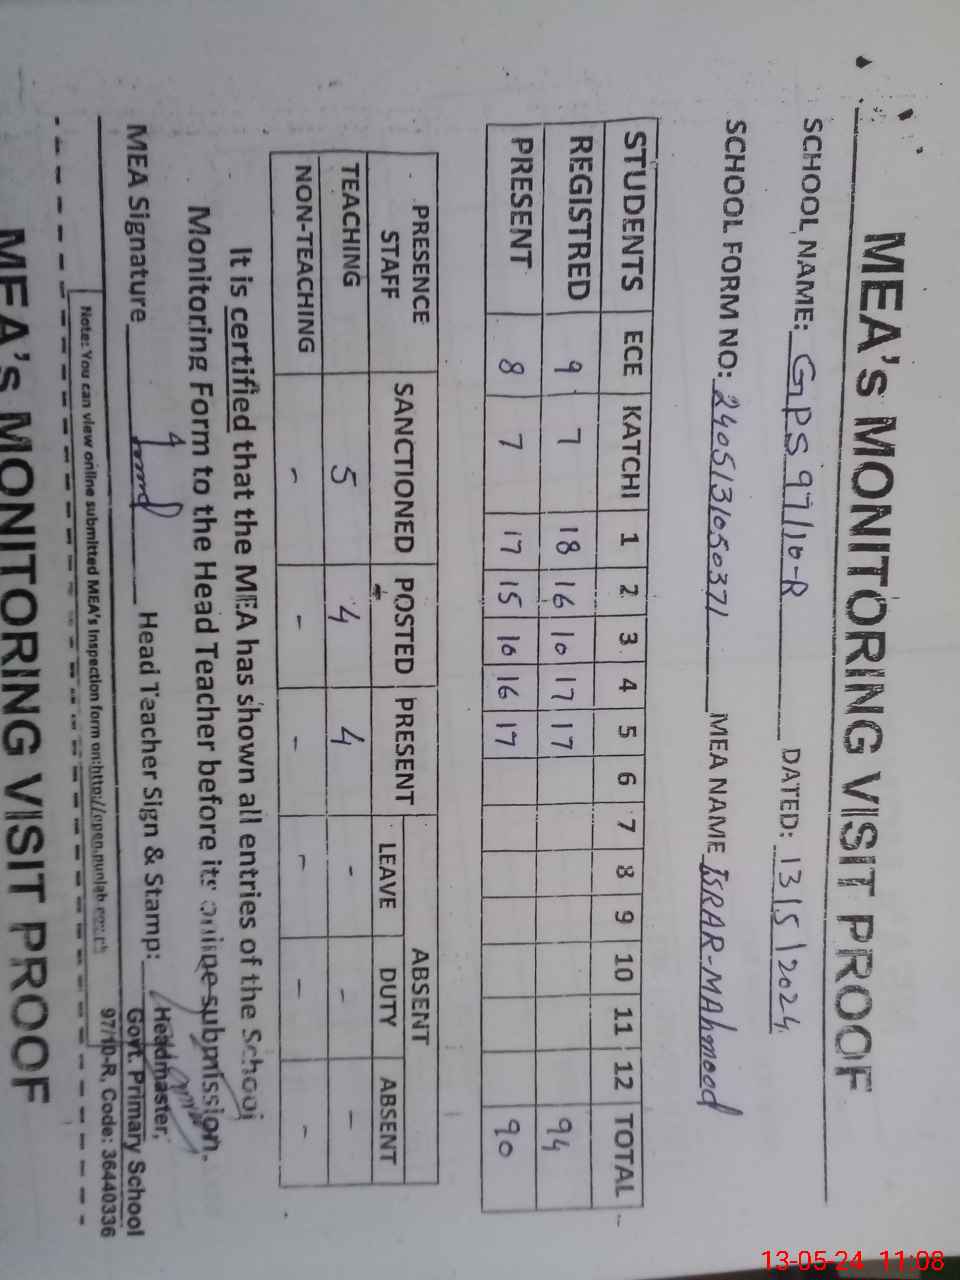 MEA's MONITORING VISIT PROOF
SCHOOL NAME: GPS 97/10-R DATED: 13/5/2024
SCHOOL FORM NO: 2405131050371 MEA NAME ISRAR-MAhmood
STUDENTS ECE KATCHI 1 2 3 4 5 6 7 8 9 10 11 12 TOTAL
REGISTRED 9 7 18 16 10 17 17 94
PRESENT 8 7 17 15 10 16 17 90
PRESENCE STAFF SANCTIONED POSTED PRESENT ABSENT
LEAVE DUTY ABSENT
TEACHING 5 4 4 - - -
NON-TEACHING - - - - - -
It is certified that the MEA has shown all entries of the School
Monitoring Form to the Head Teacher before its online submission.
MEA Signature Head Teacher Sign & Stamp:
Headmaster,
Govt. Primary School
97/10-R, Code: 36440336
Note: You can view online submitted MEA's Inspection form on:http://open.punjab.gov.pk
MEA's MONITORING VISIT PROOF
13-05-24 11:08